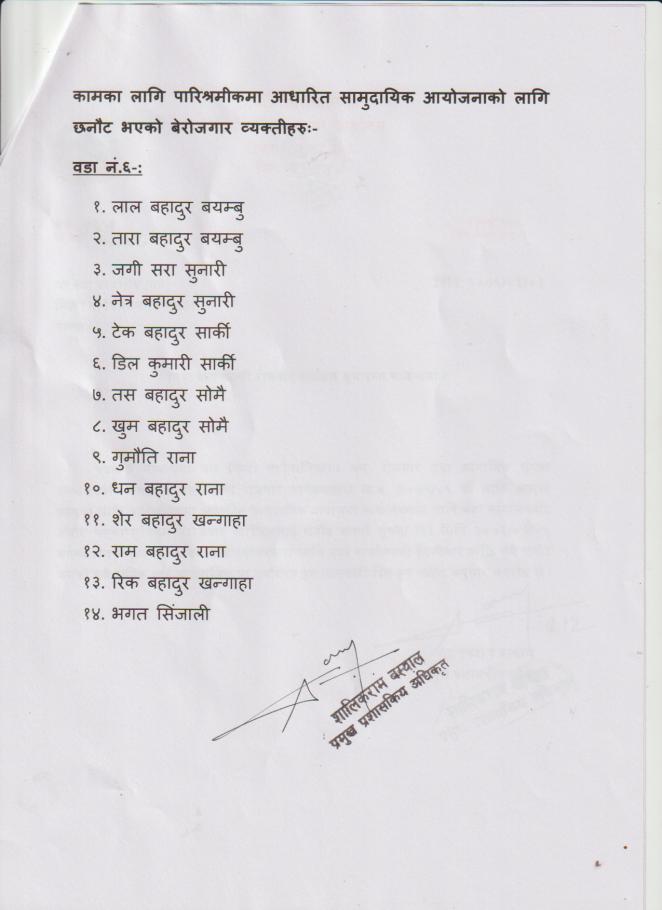 कामका लागि पारिश्रमीकमा आधारित सामुदायिक आयोजनाको लागि
छनौट भएको बेरोजगार व्यक्तीहरुः-
वडा नं.६-:
१. लाल बहादुर बयम्बु
२. तारा बहादुर बयम्बु
३. जगी सरा सुनारी
४. नेत्र बहादुर सुनारी
५. टेक बहादुर सार्की
६. डिल कुमारी सार्की
७. तस बहादुर सोमै
८. खुम बहादुर सोमै
९. गुमौति राना
१०. धन बहादुर राना
११. शेर बहादुर खन्गाहा
१२. राम बहादुर राना
१३. रिक बहादुर खन्गाहा
१४. भगत सिंजाली
शालिकराम बस्याल
प्रमुख प्रशासकिय अधिकृत